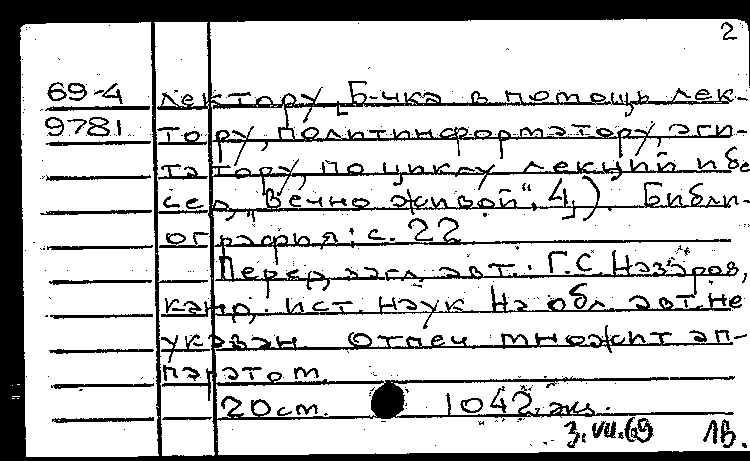 2
69-4 лектору, [Б-чка в помощь лек-
9781 тору, политинформатору, аги-
татору, по циклу лекций и бе
сед „Вечно живой“, 4]). Библи-
ография: с. 22
Перед загл. авт.: Г.С. Назаров,
канд. ист. наук На обл. авт. не
указан. Отпеч множит ап-
паратом.
20 см. 1042 экз.
3.VII.69 ЛВ.